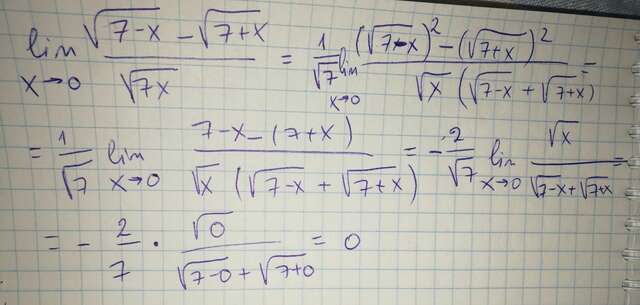 lim x→0 (√(7-x) - √(7+x)) / √(7x) = 1/√7 lim x→0 ((√(7-x))² - (√(7+x))²) / (√x (√(7-x) + √(7+x))) =
= 1/√7 lim x→0 (7-x-(7+x)) / (√x (√(7-x) + √(7+x))) = -2/√7 lim x→0 √x / (√(7-x) + √(7+x)) =
= - 2/7 · √0 / (√(7-0) + √(7+0)) = 0